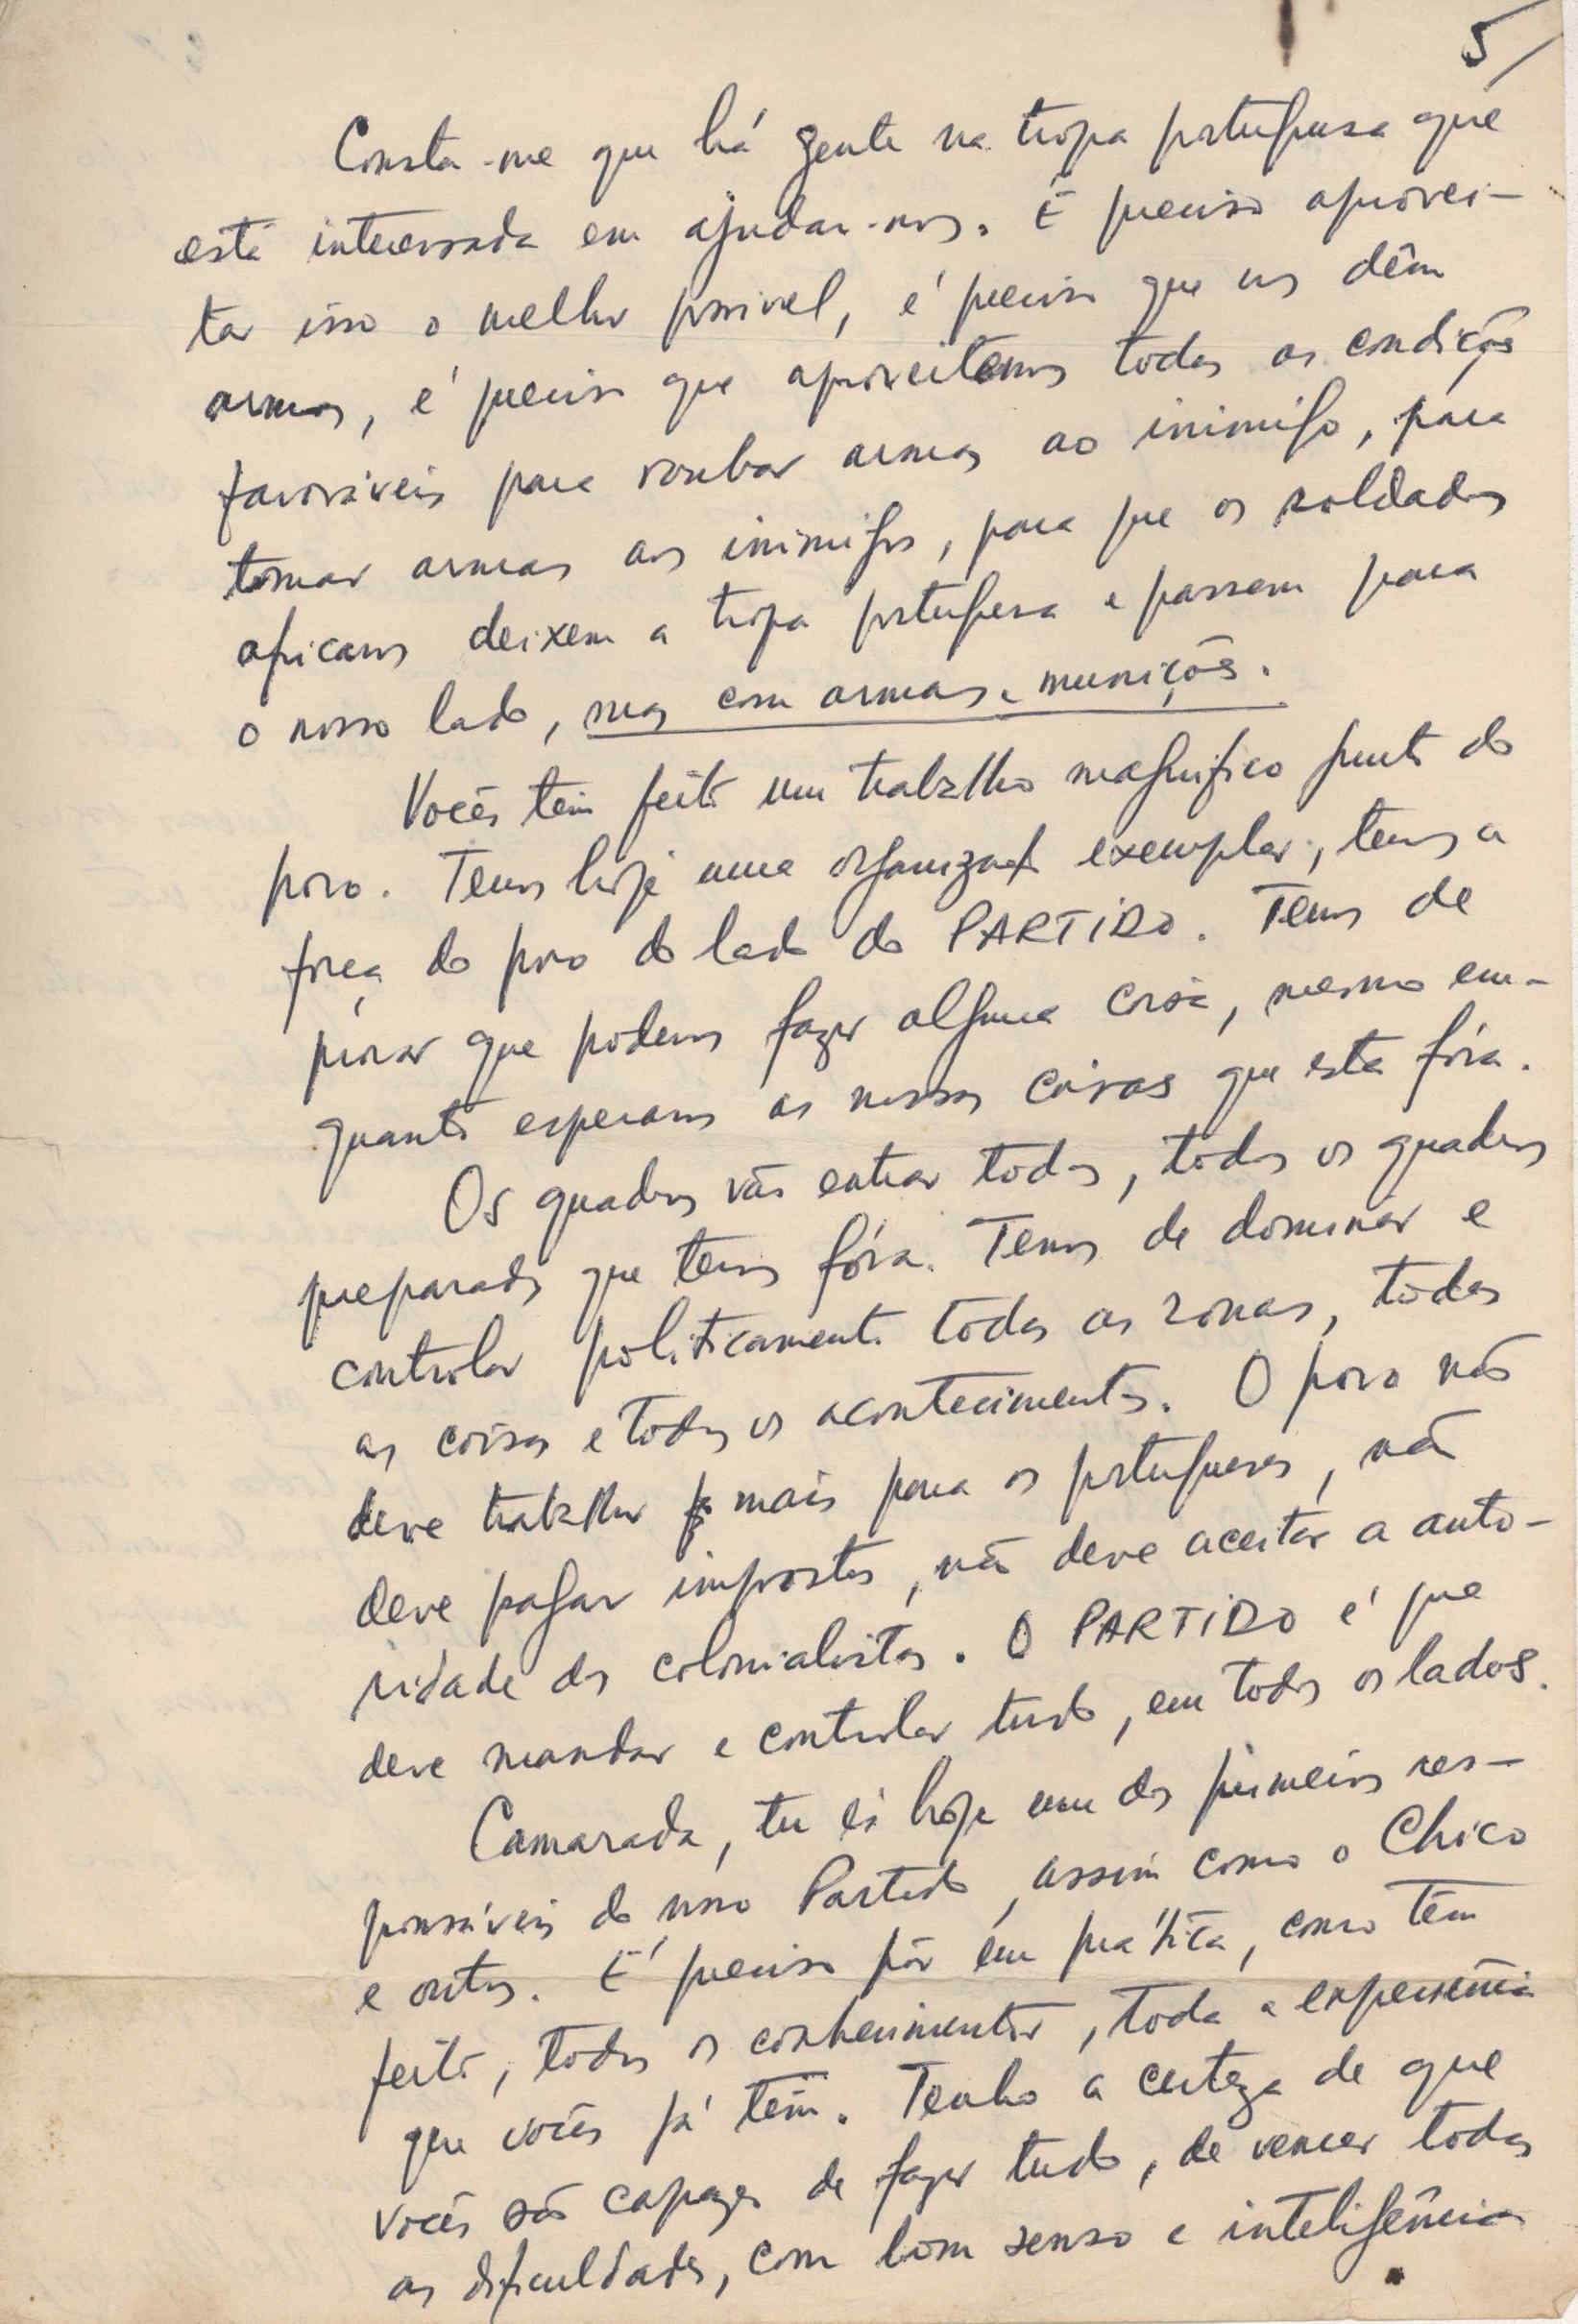 5/
Consta-me que há gente na tropa portuguesa que
está interessada em ajudar-nos. É preciso aprovei-
tar isso o melhor possivel, é preciso que nos dêm
armas, é preciso que aproveitemos todas as condições
favoráveis para roubar armas ao inimigo, para
tomar armas aos inimigos, para que os soldados
africanos deixem a tropa portuguesa e passem para
o nosso lado, mas com armas e munições.
Vocês têm feito um trabalho magnifico junto do
povo. Temos hoje uma organização exemplar, temos a
força do povo do lado do PARTIDO. Temos de
provar que podemos fazer alguma coisa, mesmo en-
quanto esperamos as nossas coisas que está fóra.
Os quadros vão entrar todos, todos os quadros
preparados que temos fóra. Temos de dominar e
controlar politicamente todas as zonas, todas
as coisas e todos os acontecimentos. O povo não
deve trabalhar mais para os portugueses, não
deve pagar impostos, não deve aceitar a auto-
ridade dos colonialistas. O PARTIDO é que
deve mandar e controlar tudo, em todos os lados.
Camarada, tu és hoje um dos primeiros res-
ponsáveis do nosso Partido, assim como o Chico
e outros. É preciso pôr em prática, como têm
feito, todos os conhecimentos, toda a experiência
que vocês já têm. Tenho a certeza de que
vocês são capazes de fazer tudo, de vencer todas
as dificuldades, com bom senso e inteligência